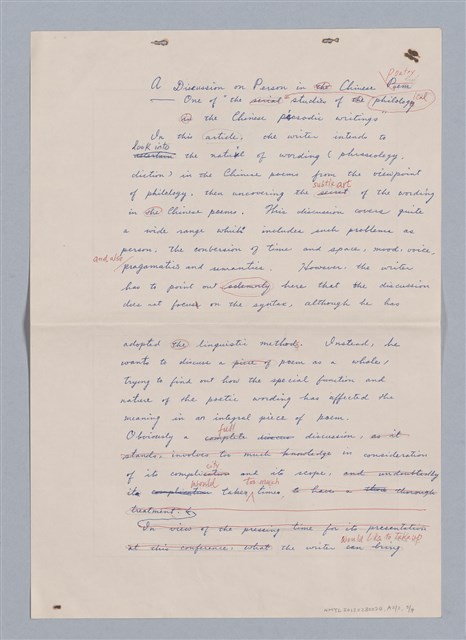 Poetry
A Discussion on Person in the Chinese Poem
— One of "the serial" studies of the philology ical
on the Chinese prosodic writings"
In this article, the writer intends to
look into
ascertain the nature of wording (phraseology,
diction) in the Chinese poems from the viewpoint
subtle art
of philology, then uncovering the secret of the wording
in the Chinese poems. This discussion covers quite
a wide range which includes such problems as
person, the conversion of time and space, mood, voice,
and also
pragamatics and semantics. However, the writer
has to point out solemnly here that the discussion
does not focus on the syntax, although he has
adopted the linguistic method. Instead, he
wants to discuss a piece of poem as a whole,
trying to find out how the special function and
nature of the poetic wording has affected the
meaning in an integral piece of poem.
full
Obviously a complete discussion, as it
stands, involves too much knowledge in consideration
city
of its complication and its scope, and undoubtedly
would too much
its complication takes time, to have a thorough
treatment.
In view of the pressing time for its presentation
would like to take up
at this conference, what the writer can bring